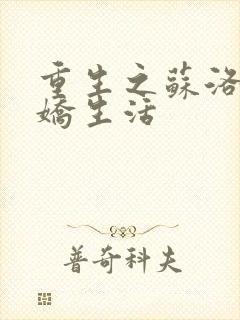 重生之蘇洛
嬌生活
普奇科夫